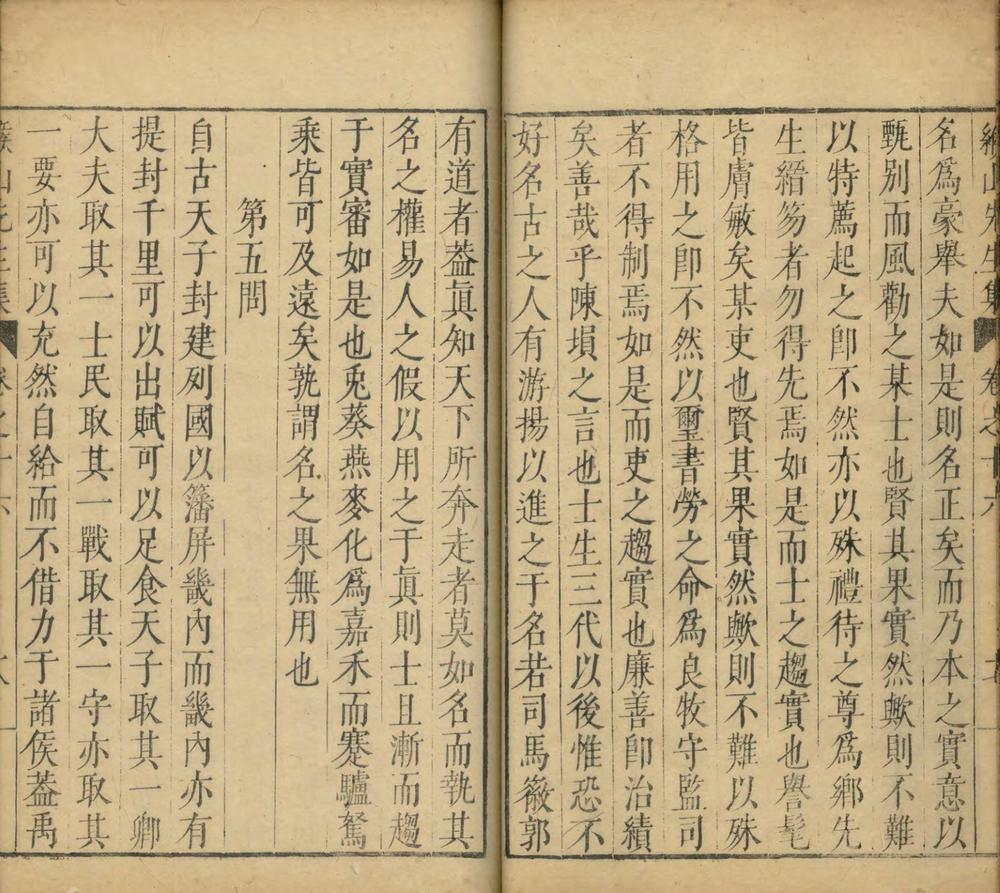 緱山先生集 卷之十六
名爲豪舉夫如是則名正矣而乃本之實意以
甄别而風勸之某士也賢其果實然歟則不難
以特薦起之卽不然亦以殊禮待之尊爲鄉先
生縉笏者勿得先焉如是而士之趨實也譽髦
皆膚敏矣某吏也賢其果實然歟則不難以殊
格用之卽不然以璽書勞之命爲良牧守監司
者不得制焉如是而吏之趨實也廉善卽治績
矣善哉乎陳塤之言也士生三代以後惟恐不
好名古之人有游揚以進之于名若司馬徽郭
有道者葢眞知天下所奔走者莫如名而執其
名之權易人之假以用之于眞則士且漸而趨
于實審如是也兎葵燕麥化爲嘉禾而蹇驢駑
乘皆可及遠矣孰謂名之果無用也
第五問
自古天子封建列國以籓屏畿內而畿內亦有
提封千里可以出賦可以足食天子取其一卿
大夫取其一士民取其一戰取其一守亦取其
一要亦可以充然自給而不借力于諸侯葢禹
緱山先生集 卷之十六